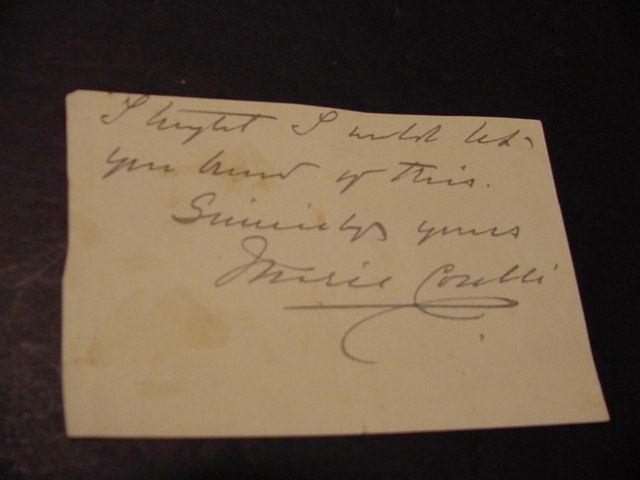 I thought I would let
you know of this.
Sincerely yours
Marie Corelli